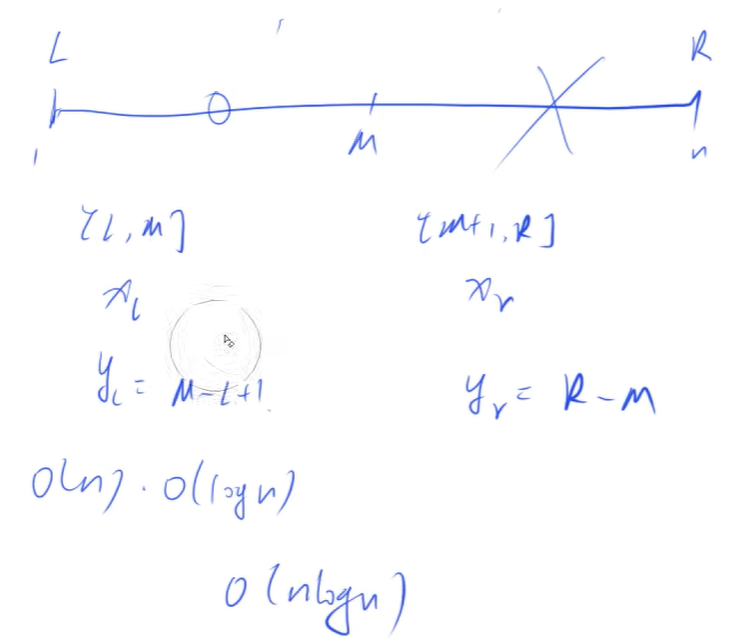 L R
1 M n
[L, M] [M+1, R]
x_l x_r
y_l = M-L+1 y_r = R-M
O(n) · O(log n)
O(n log n)